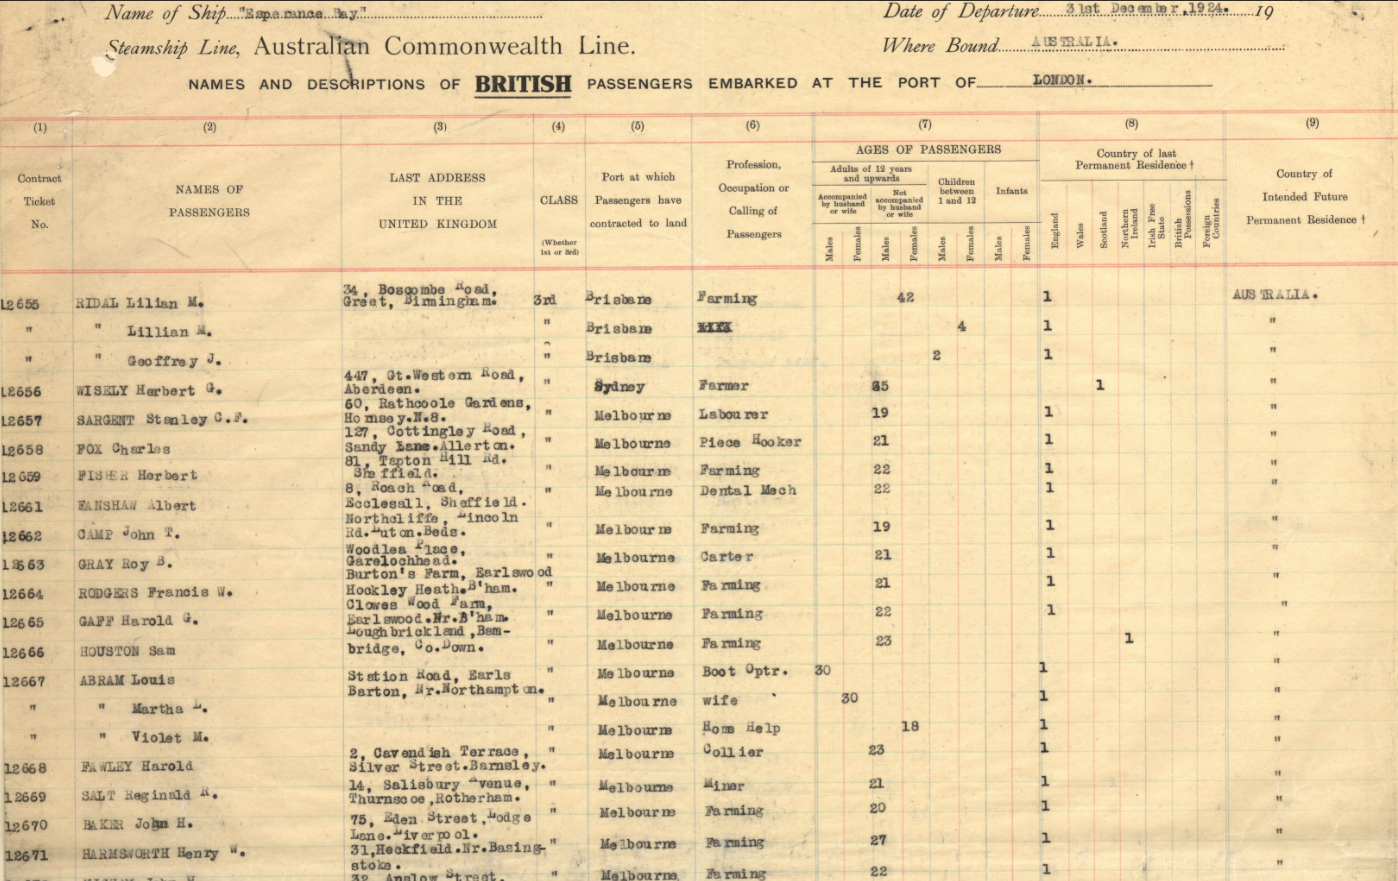 Name of Ship "Esperance Bay" Date of Departure 31st December, 1924. 19
Steamship Line, Australian Commonwealth Line. Where Bound AUSTRALIA.
NAMES AND DESCRIPTIONS OF BRITISH PASSENGERS EMBARKED AT THE PORT OF LONDON.
(1) (2) (3) (4) (5) (6) (7) (8) (9)
Contract Ticket No.
NAMES OF PASSENGERS
LAST ADDRESS IN THE UNITED KINGDOM
CLASS (Whether 1st or 3rd)
Port at which Passengers have contracted to land
Profession, Occupation or Calling of Passengers
AGES OF PASSENGERS
Adults of 12 years and upwards
Accompanied by husband or wife
Not accompanied by husband or wife
Children between 1 and 12
Infants
Males Females Males Females Males Females Males Females
Country of last Permanent Residence †
England Wales Scotland Northern Ireland Irish Free State British Possessions Foreign Countries
Country of Intended Future Permanent Residence †
12655 RIDAL Lilian M. 34, Boscombe Road, Greet, Birmingham. 3rd Brisbane Farming 42 1 AUSTRALIA.
" " Lillian M. " Brisbane 4 1 "
" " Geoffrey J. " Brisbane 2 1 "
12656 WISELY Herbert G. 447, Gt.Western Road, Aberdeen. " Sydney Farmer 1 "
12657 SARGENT Stanley C.F. 60, Rathcoole Gardens, Hornsey.N.8. " Melbourne Labourer 19 1 "
12658 FOX Charles 127, Cottingley Road, Sandy Lane.Allerton. " Melbourne Piece Hooker 21 1 "
12659 FISHER Herbert 81, Tapton Hill Rd. Sheffield. " Melbourne Farming 22 1 "
12661 FANSHAW Albert 8, Roach Road, Ecclesall, Sheffield. " Melbourne Dental Mech 22 1 "
12662 CAMP John T. Northcliffe, Lincoln Rd.Luton.Beds. " Melbourne Farming 19 1 "
12663 GRAY Roy B. Woodlea Place, Garelochhead. " Melbourne Carter 21 1 "
12664 RODGERS Francis W. Burton's Farm, Earlswood Hockley Heath.B'ham. " Melbourne Farming 21 1 "
12665 GAFF Harold G. Clowes Wood Farm, Earlswood.Nr.B'ham. " Melbourne Farming 22 1 "
12666 HOUSTON Sam Loughbrickland,Bam- bridge, Co.Down. " Melbourne Farming 23 1 "
12667 ABRAM Louis Station Road, Earls Barton, Nr.Northampton. " Melbourne Boot Optr. 30 1 "
" " Martha L. " Melbourne wife 30 1 "
" " Violet M. " Melbourne Home Help 18 1 "
12668 FAWLEY Harold 2, Cavendish Terrace, Silver Street.Barnsley. " Melbourne Collier 23 1 "
12669 SALT Reginald R. 14, Salisbury Avenue, Thurnscoe,Rotherham. " Melbourne Miner 21 1 "
12670 BAKER John H. 75, Eden Street,Lodge Lane.Liverpool. " Melbourne Farming 20 1 "
12671 HARMSWORTH Henry W. 31,Heckfield.Nr.Basing- stoke. " Melbourne Farming 27 1 "
32, Anslow Street, " Melbourne Farming 22 1 "